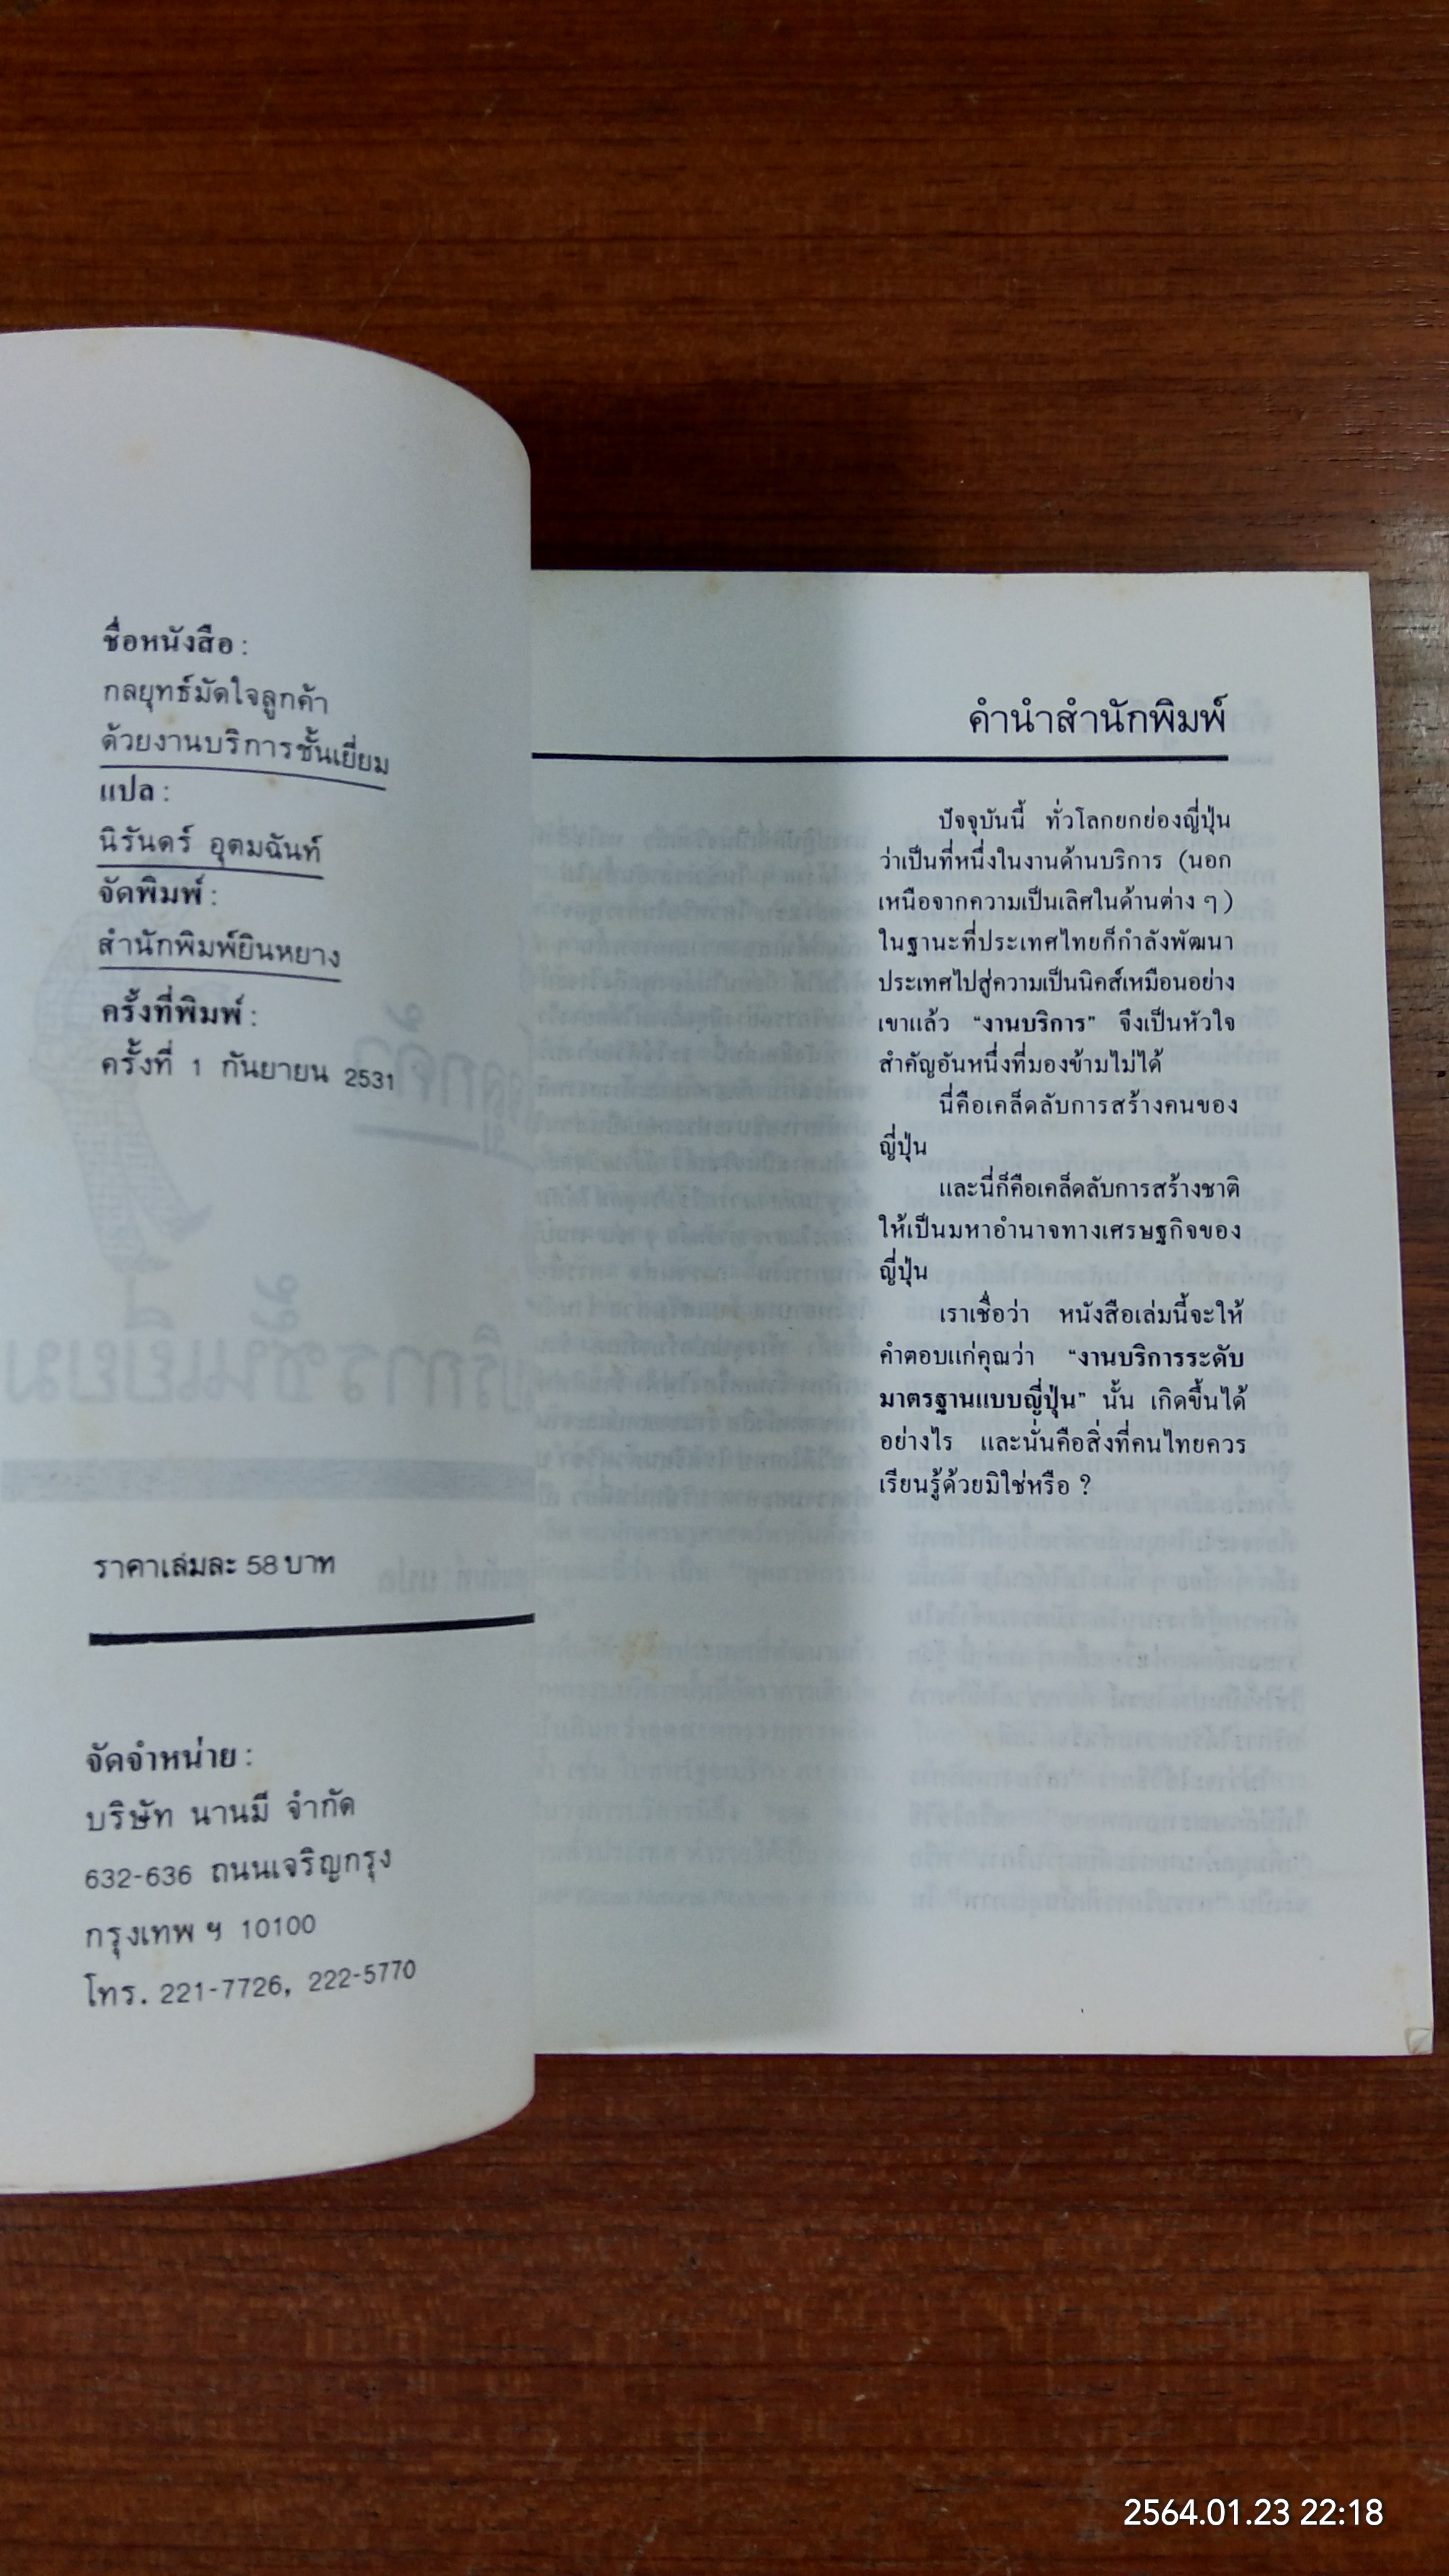 ชื่อหนังสือ :
กลยุทธ์มัดใจลูกค้า
ด้วยงานบริการชั้นเยี่ยม
แปล :
นิรันดร์ อุตมฉันท์
จัดพิมพ์ :
สำนักพิมพ์ยินหยาง
ครั้งที่พิมพ์ :
ครั้งที่ 1 กันยายน 2531
ราคาเล่มละ 58 บาท
จัดจำหน่าย :
บริษัท นานมี จำกัด
632-636 ถนนเจริญกรุง
กรุงเทพ ฯ 10100
โทร. 221-7726, 222-5770
คำนำสำนักพิมพ์
ปัจจุบันนี้ ทั่วโลกยกย่องญี่ปุ่น
ว่าเป็นที่หนึ่งในงานด้านบริการ (นอก
เหนือจากความเป็นเลิศในด้านต่าง ๆ )
ในฐานะที่ประเทศไทยก็กำลังพัฒนา
ประเทศไปสู่ความเป็นนิคส์เหมือนอย่าง
เขาแล้ว “งานบริการ” จึงเป็นหัวใจ
สำคัญอันหนึ่งที่มองข้ามไม่ได้
นี่คือเคล็ดลับการสร้างคนของ
ญี่ปุ่น
และนี่ก็คือเคล็ดลับการสร้างชาติ
ให้เป็นมหาอำนาจทางเศรษฐกิจของ
ญี่ปุ่น
เราเชื่อว่า หนังสือเล่มนี้จะให้
คำตอบแก่คุณว่า “งานบริการระดับ
มาตรฐานแบบญี่ปุ่น” นั้น เกิดขึ้นได้
อย่างไร และนั่นคือสิ่งที่คนไทยควร
เรียนรู้ด้วยมิใช่หรือ ?
2564.01.23 22:18